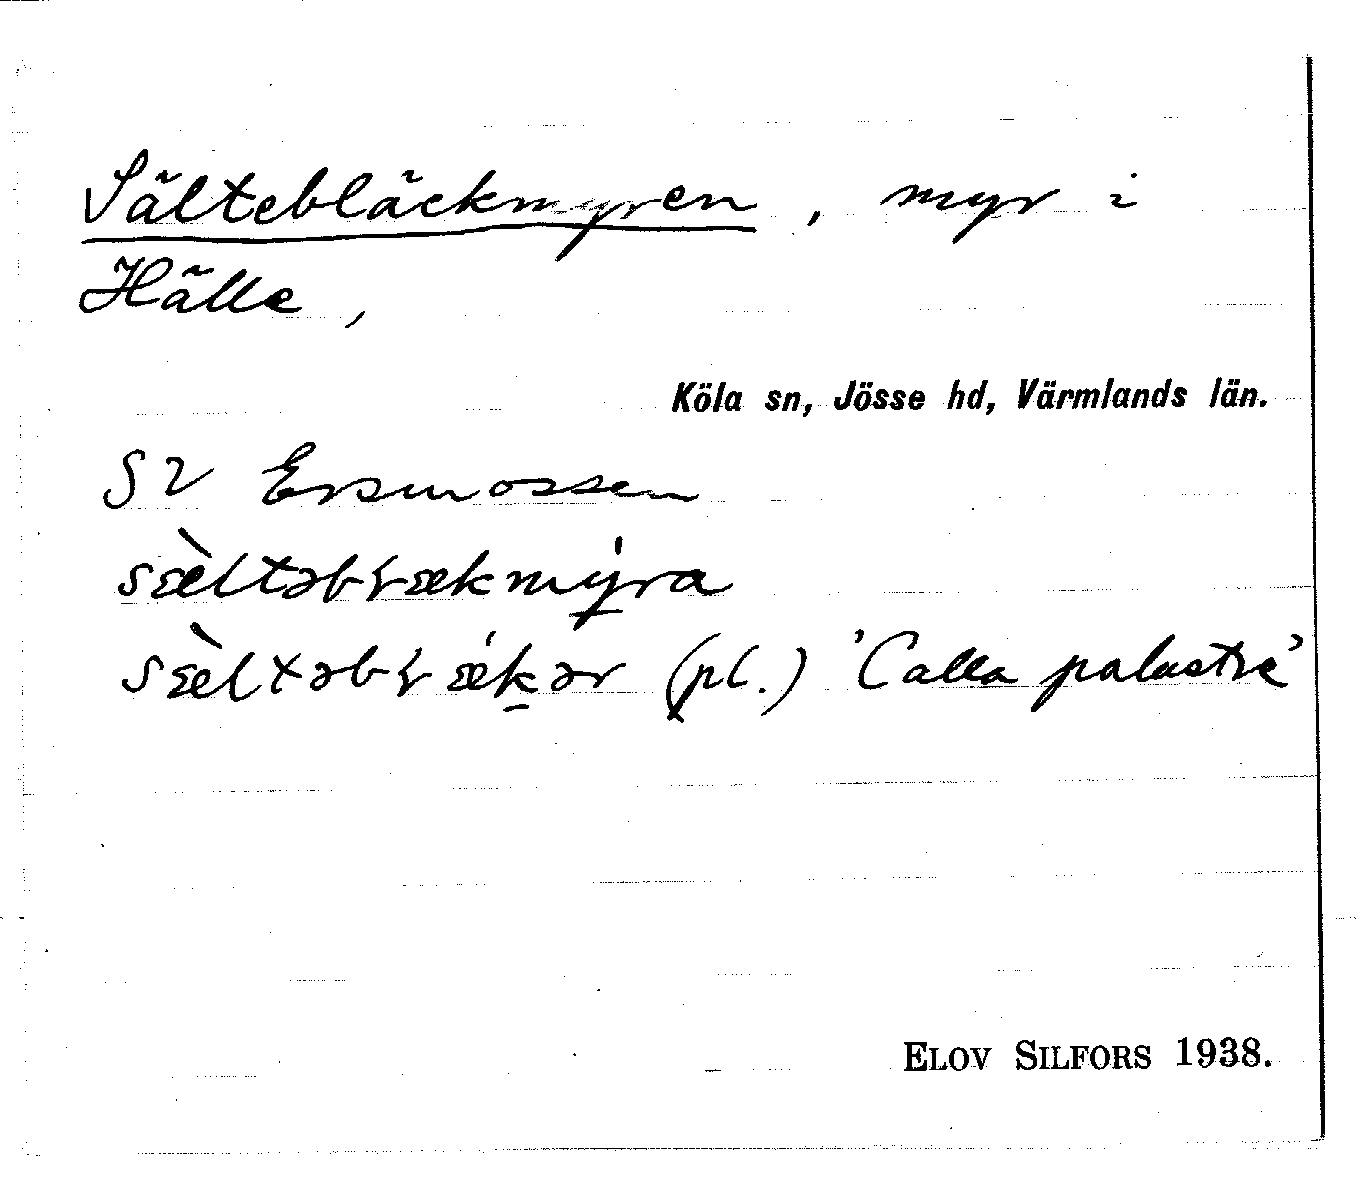 Sältebläckmyren, myr i
Hälle,
Köla sn, Jösse hd, Värmlands län.
SV Ersmossen
sæ̀ltəbɽækmýra
sæ̀ltəbɽǽkər (pl.) 'Calla palustre'
ELOV SILFORS 1938.